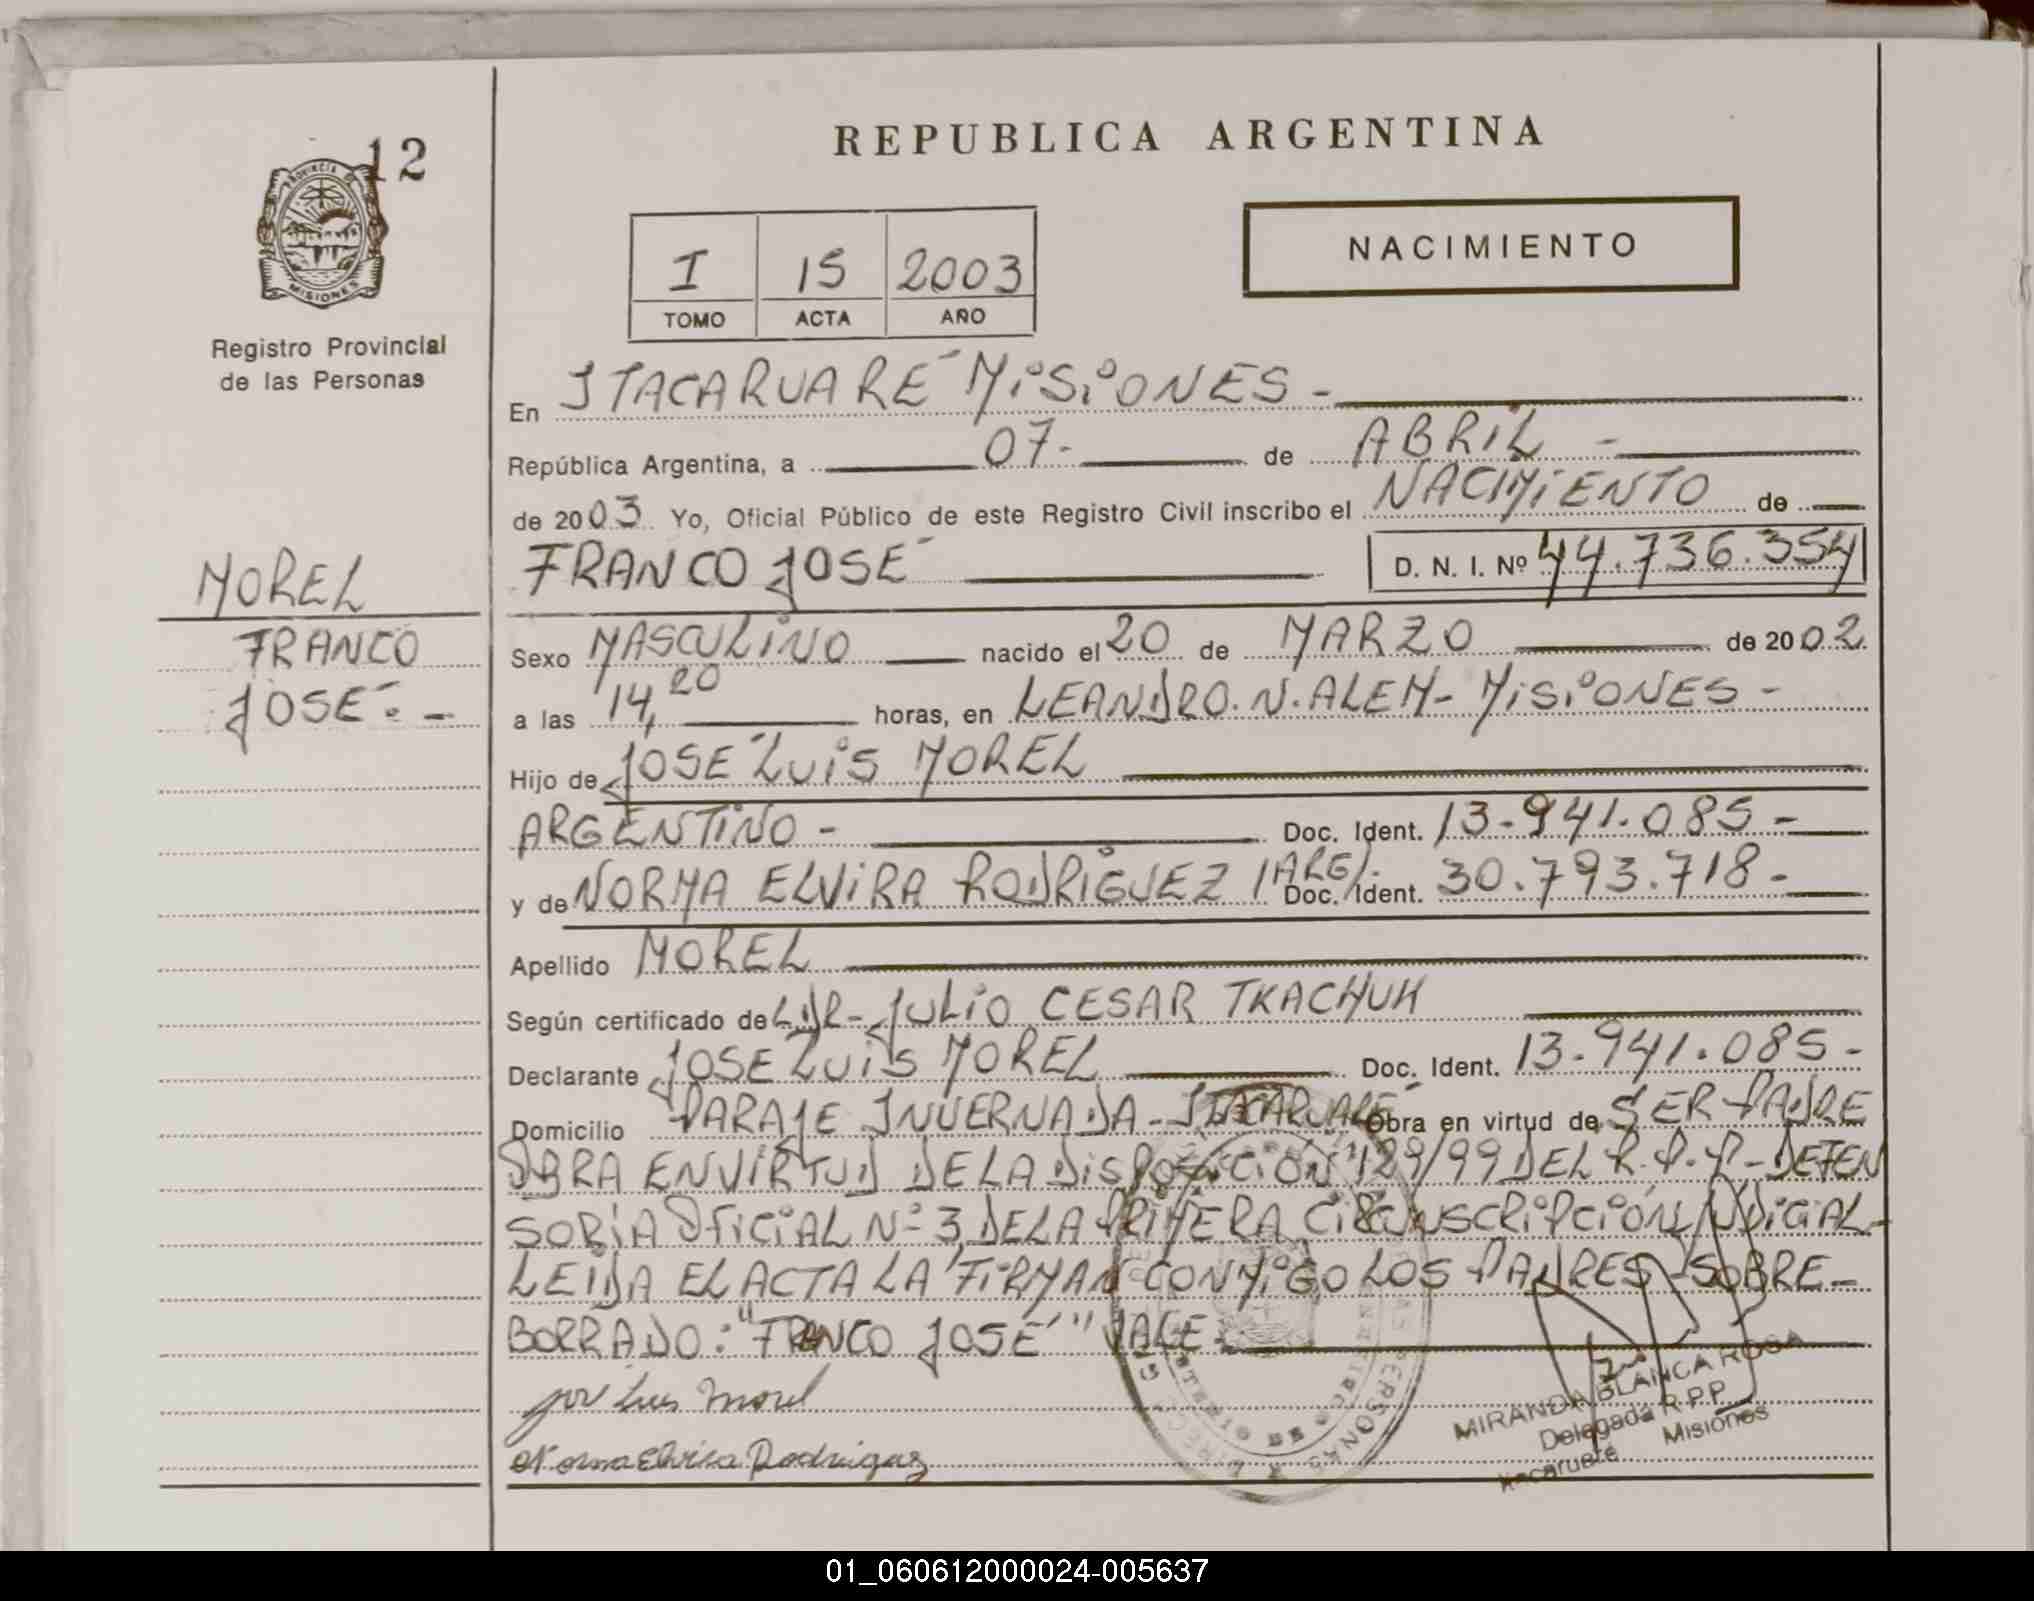 12
PROVINCIA DE
MISIONES
Registro Provincial
de las Personas
REPUBLICA ARGENTINA
NACIMIENTO
I 15 2003
TOMO ACTA AÑO
En ITACARUARÉ MISIONES -
República Argentina, a 07- de ABRIL -
de 2003 Yo, Oficial Público de este Registro Civil inscribo el NACIMIENTO de
FRANCO JOSÉ D. N. I. Nº 44.736.354
MOREL
FRANCO
JOSÉ. -
Sexo MASCULINO nacido el 20 de MARZO de 2002
a las 14,20 horas, en LEANDRO. N. ALEM - MISIONES -
Hijo de JOSÉ LUIS MOREL
ARGENTINO - Doc. Ident. 13-941.085-
y de NORMA ELVIRA RODRIGUEZ (ARG). Doc. Ident. 30.793.718-
Apellido MOREL
Según certificado de DR- JULIO CESAR TKACHUK
Declarante JOSE LUIS MOREL Doc. Ident. 13-941.085-
Domicilio PARAJE INVERNADA - ITACARUARÉ Obra en virtud de SER PADRE
OBRA EN VIRTUD DE LA DISPOSICIÓN 129/99 DEL R.P.P- DEFEN
SORIA OFICIAL Nº 3 DE LA PRIMERA CIRCUNSCRIPCIÓN JUDICIAL-
LEIDA EL ACTA LA FIRMAN CONMIGO LOS PADRES - SOBRE-
BORRADO: "FRANCO JOSÉ" VALE.
José Luis Morel
Norma Elvira Rodriguez
MIRANDA BLANCA ROSA
Delegada R.P.P.
Itacaruaré Misiones
01_060612000024-005637